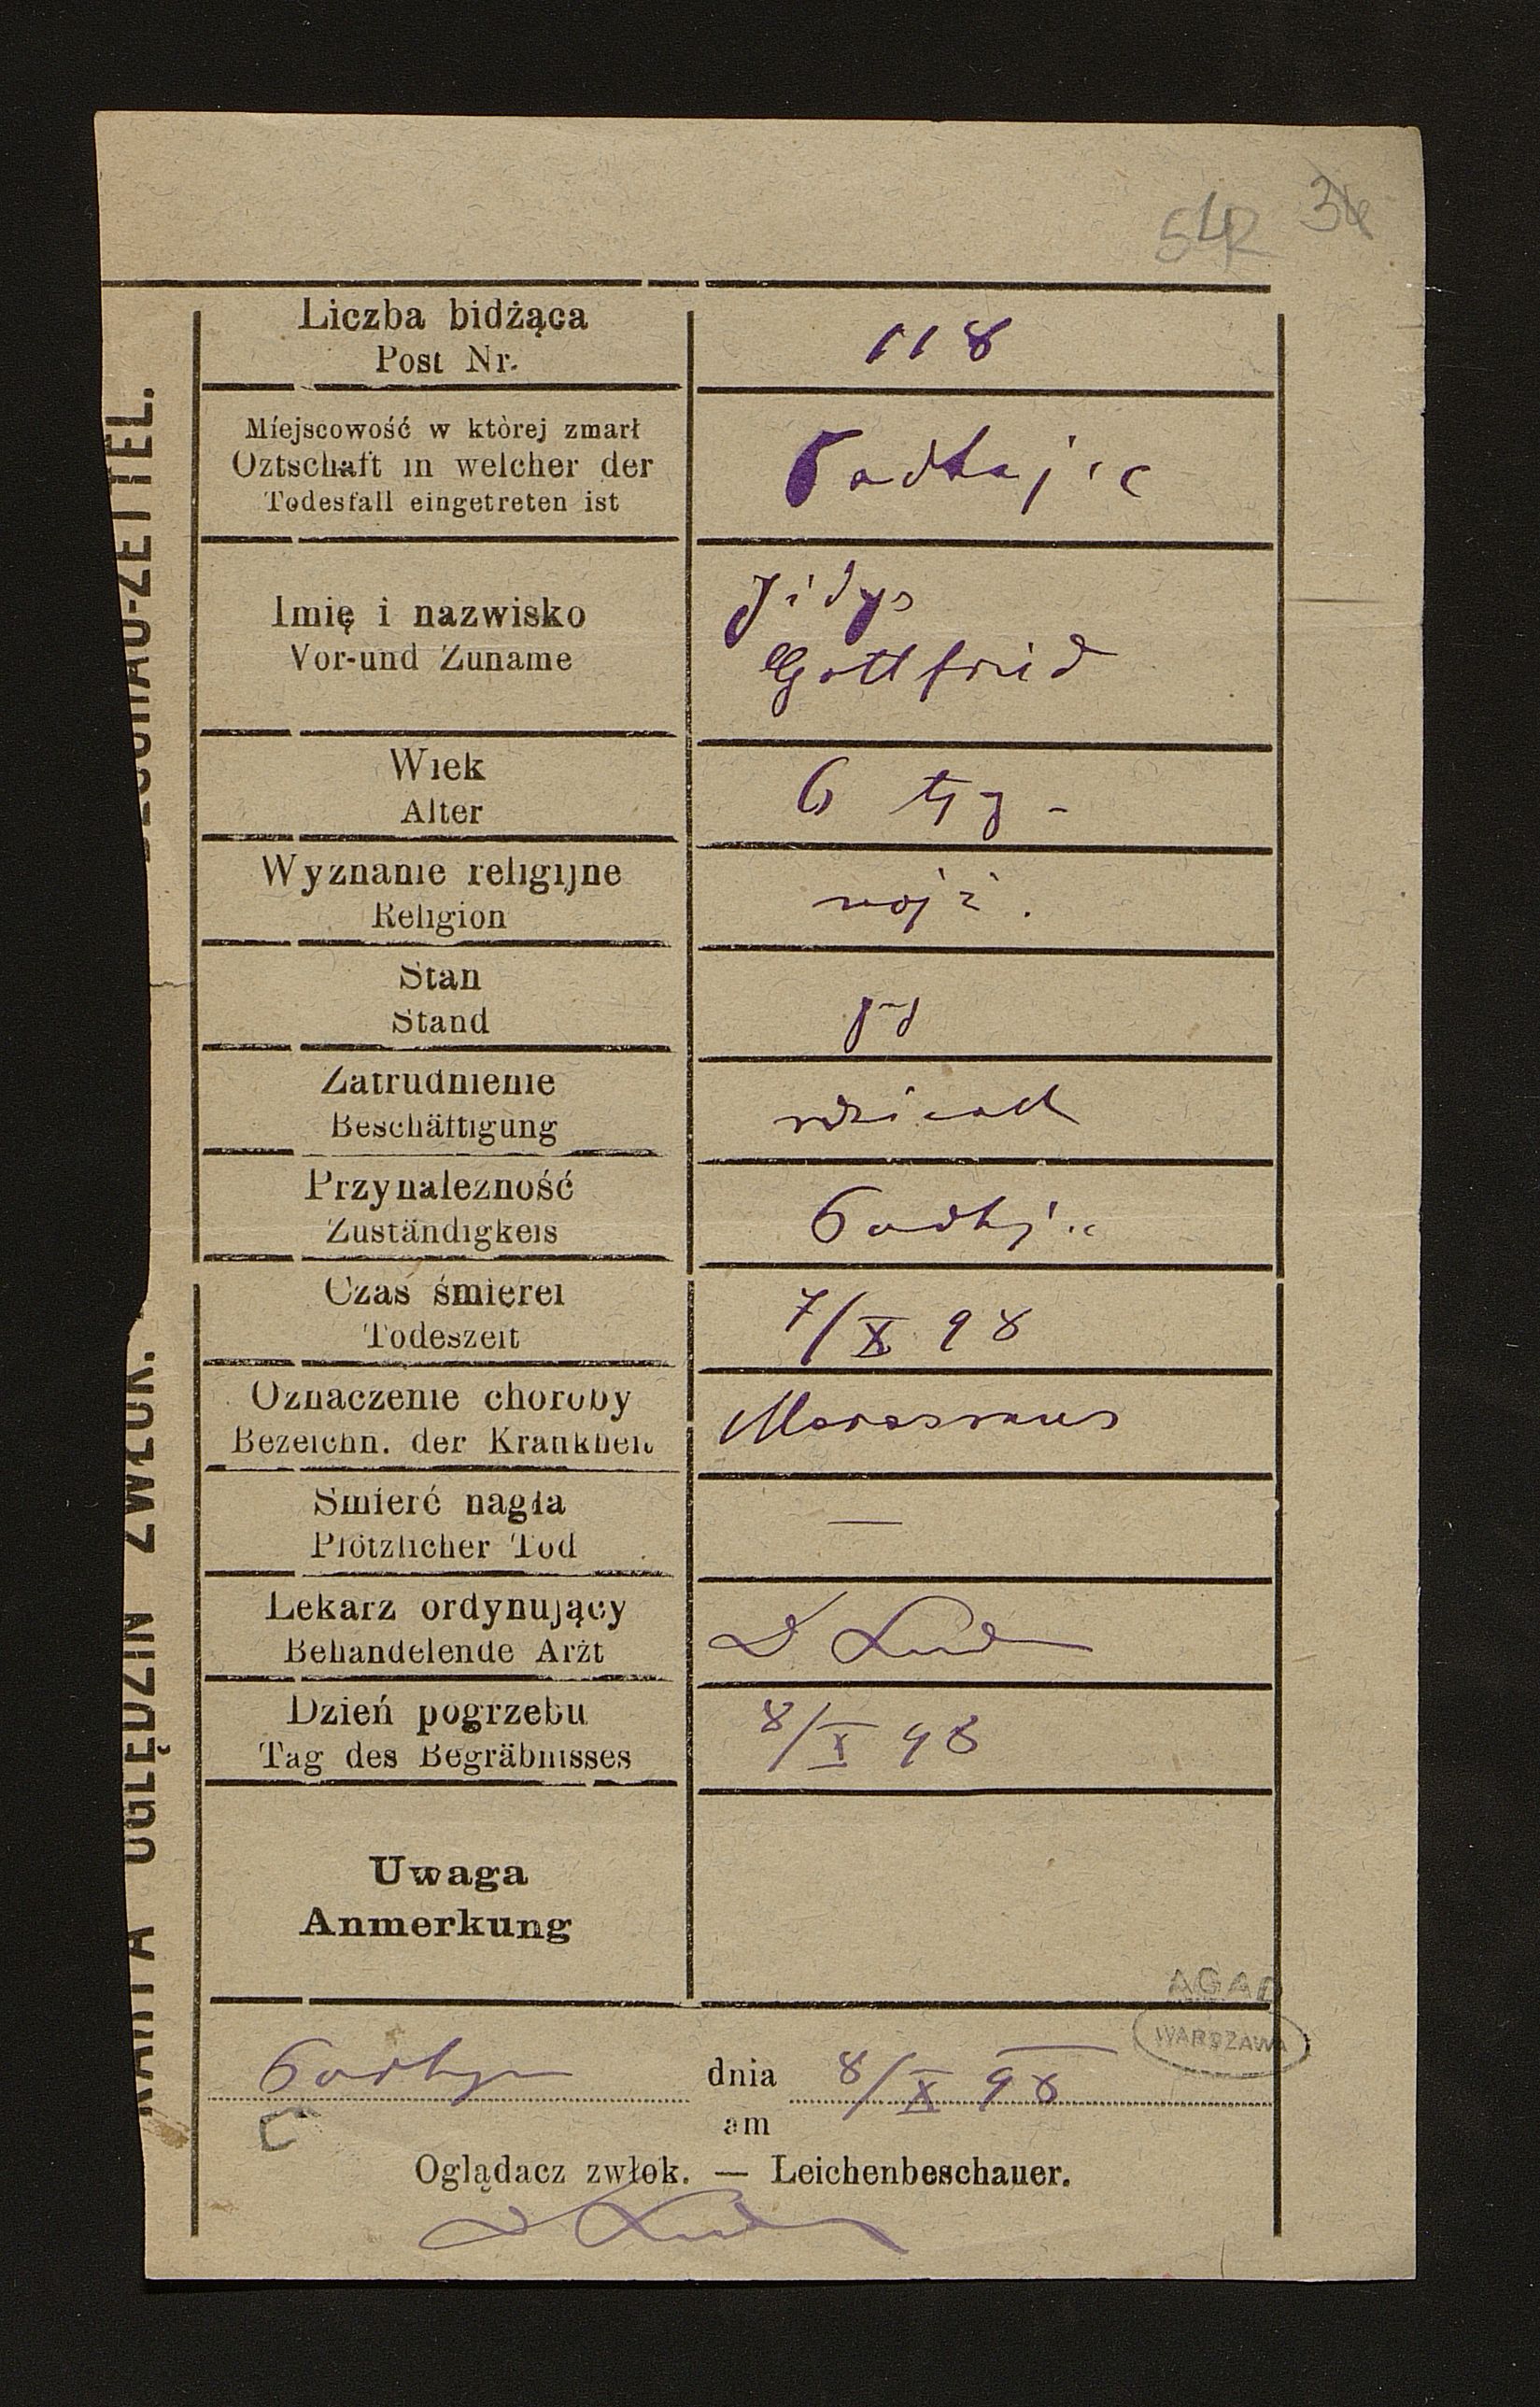 34
Liczba bidżąca
Post Nr.
118
Miejscowość w której zmarł
Oztschaft in welcher der
Todesfall eingetreten ist
Podhajce
Imię i nazwisko
Vor-und Zuname
Gottfried
Wiek
Alter
6 tyg -
Wyznanie religijne
Religion
mojż.
Stan
Stand
Zatrudnienie
Beschäftigung
Przynalezność
Zuständigkeis
Podhajce
Czas śmierci
Todeszeit
7/X 98
Oznaczenie choroby
Bezeichn. der Krankheit
Marasmus
Smierć nagła
Plötzlicher Tod
—
Lekarz ordynujący
Behandelende Arzt
D
Dzień pogrzebu
Tag des Begräbnisses
8/X 98
Uwaga
Anmerkung
AGAD
WARSZAWA
dnia 8/X 98
am
Oglądacz zwłok. — Leichenbeschauer.
KARTA OGLĘDZIN ZWŁOK.
BESCHAU-ZETTEL.